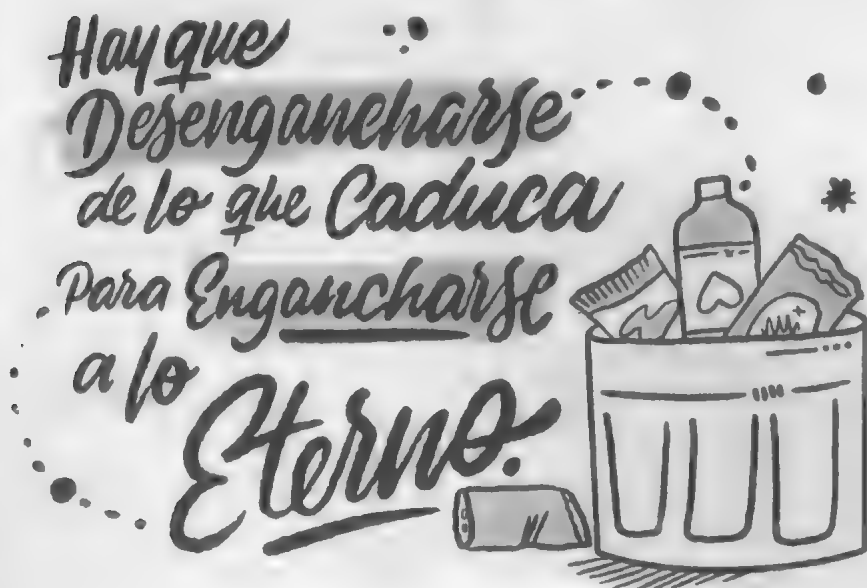 Hay que
Desengancharse
de lo que Caduca
Para Engancharse
a lo
Eterno.